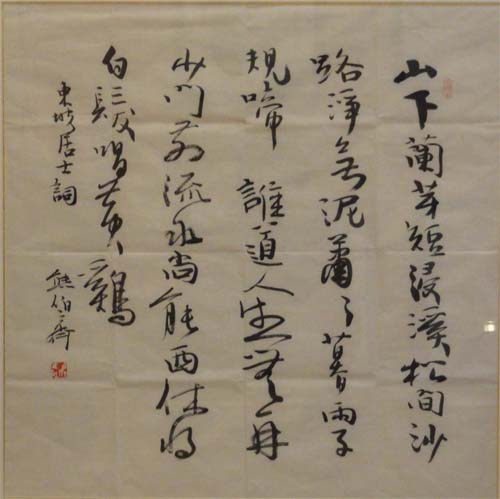 山下蘭芽短浸溪松間沙
路淨無泥蕭々暮雨子
規啼 誰道人生無再
少門前流水尚能西休將
白髮唱黃鷄
東坡居士詞
熊伯齊